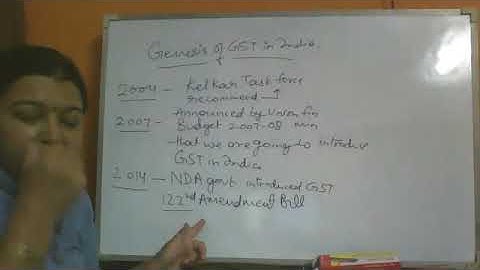 Genesis of GST in India.
2004 - Kelkar Task force
recommend
2007 - Announced by Union fin
Budget 2007-08 min
- that we are going to introduce
GST in India
2014 - NDA govt introduced GST
122nd Amendment Bill